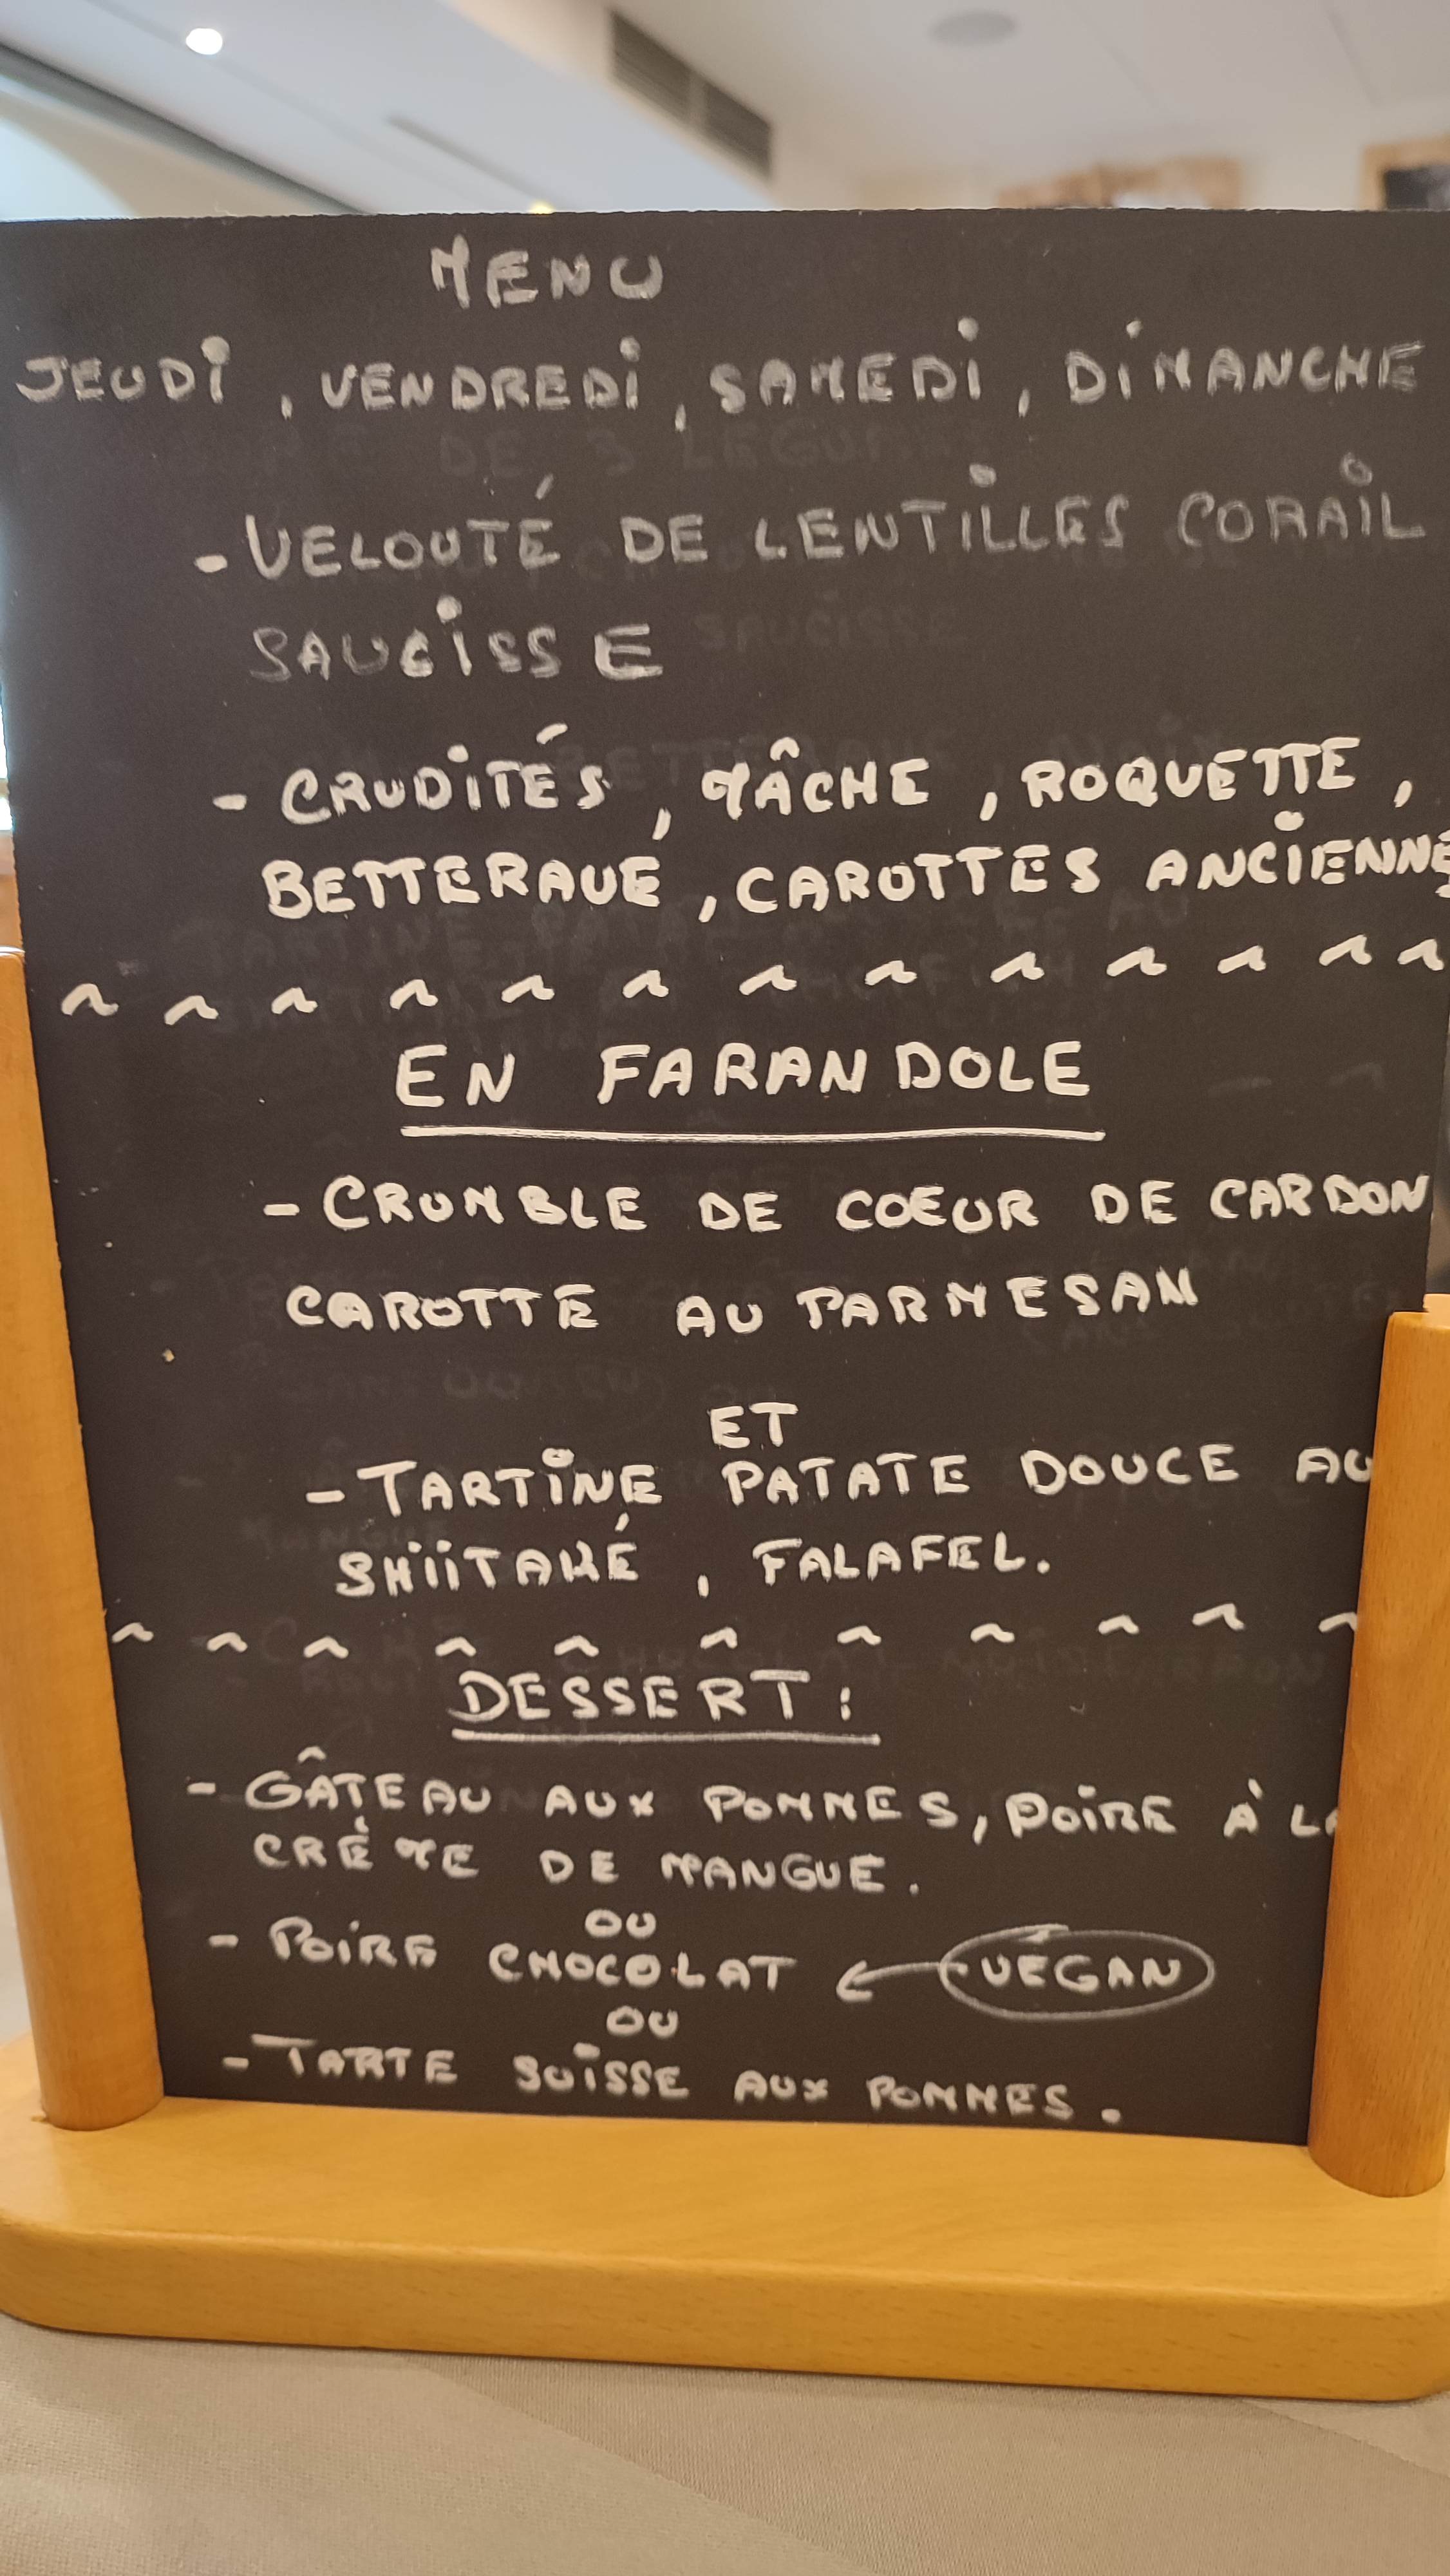 MENU
JEUDI, VENDREDI, SAMEDI, DIMANCHE
- VELOUTÉ DE LENTILLES CORAIL
SAUCISSE
- CRUDITÉS, MÂCHE, ROQUETTE,
BETTERAVE, CAROTTES ANCIENNE
~ ~ ~ ~ ~ ~ ~ ~ ~ ~ ~ ~ ~
EN FARANDOLE
- CRUMBLE DE COEUR DE CARDON
CAROTTE AU PARMESAN
ET
- TARTINE PATATE DOUCE AU
SHIITAKÉ, FALAFEL.
~ ~ ~ ~ ~ ~ ~ ~ ~ ~ ~
DESSERT:
- GÂTEAU AUX POMMES, POIRE À LA
CRÈME DE MANGUE.
OU
- POIRE CHOCOLAT ← VEGAN
OU
- TARTE SUISSE AUX POMMES.